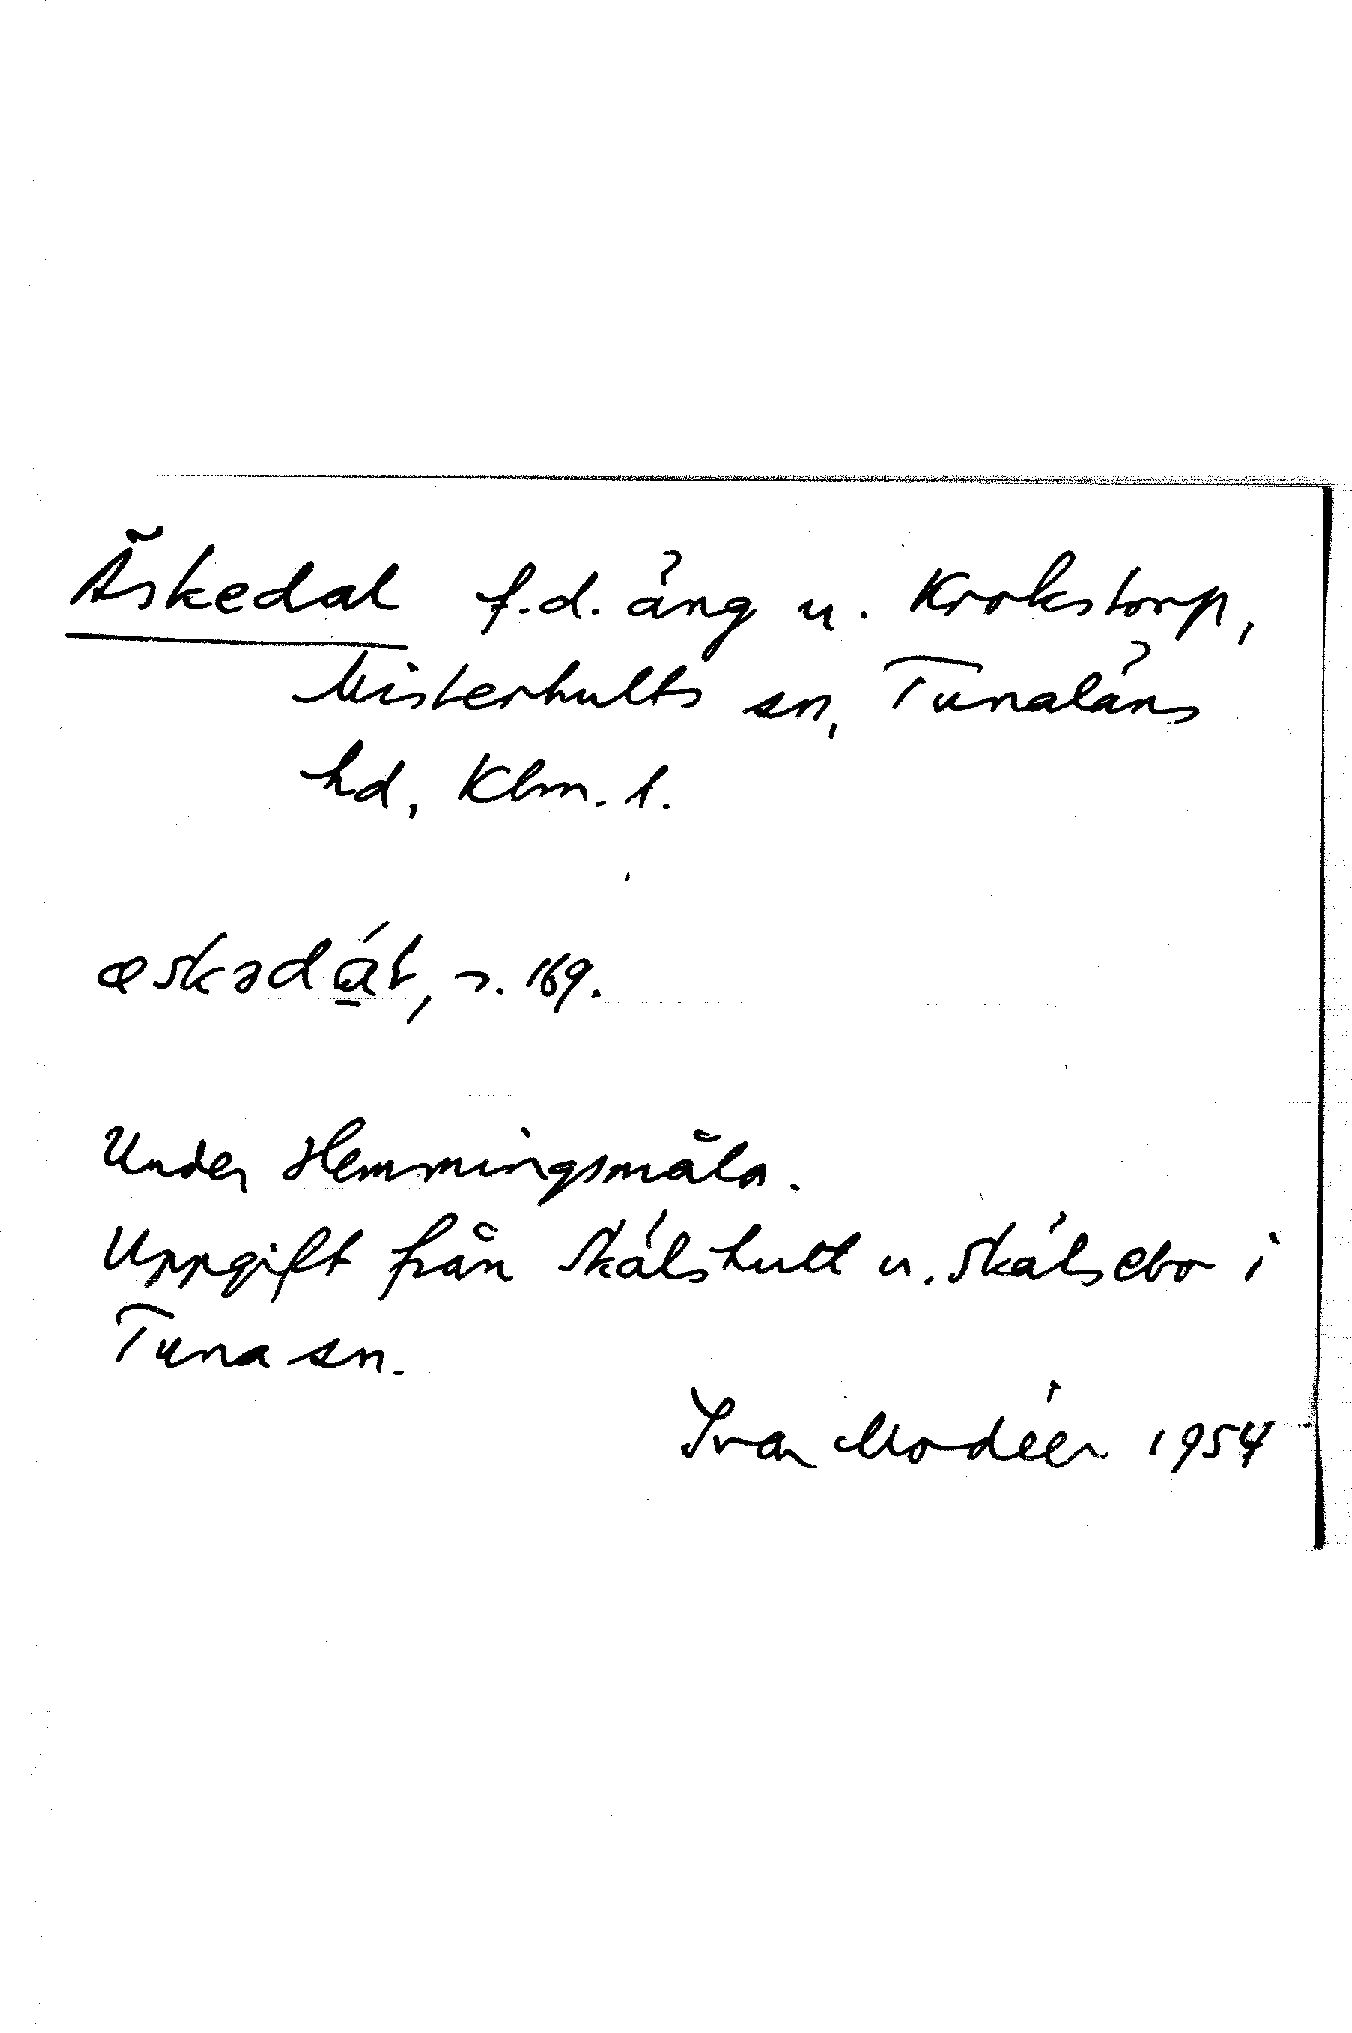 Äskedal f.d. äng u. Krokstorp,
Misterhults sn, Tunaläns
hd, Klm. l.
æskədát, s. 169.
Under Hemmingsmåla.
Uppgift från Skálshult u. Skálsebo i
Tuna sn.
Ivar Modéer 1954